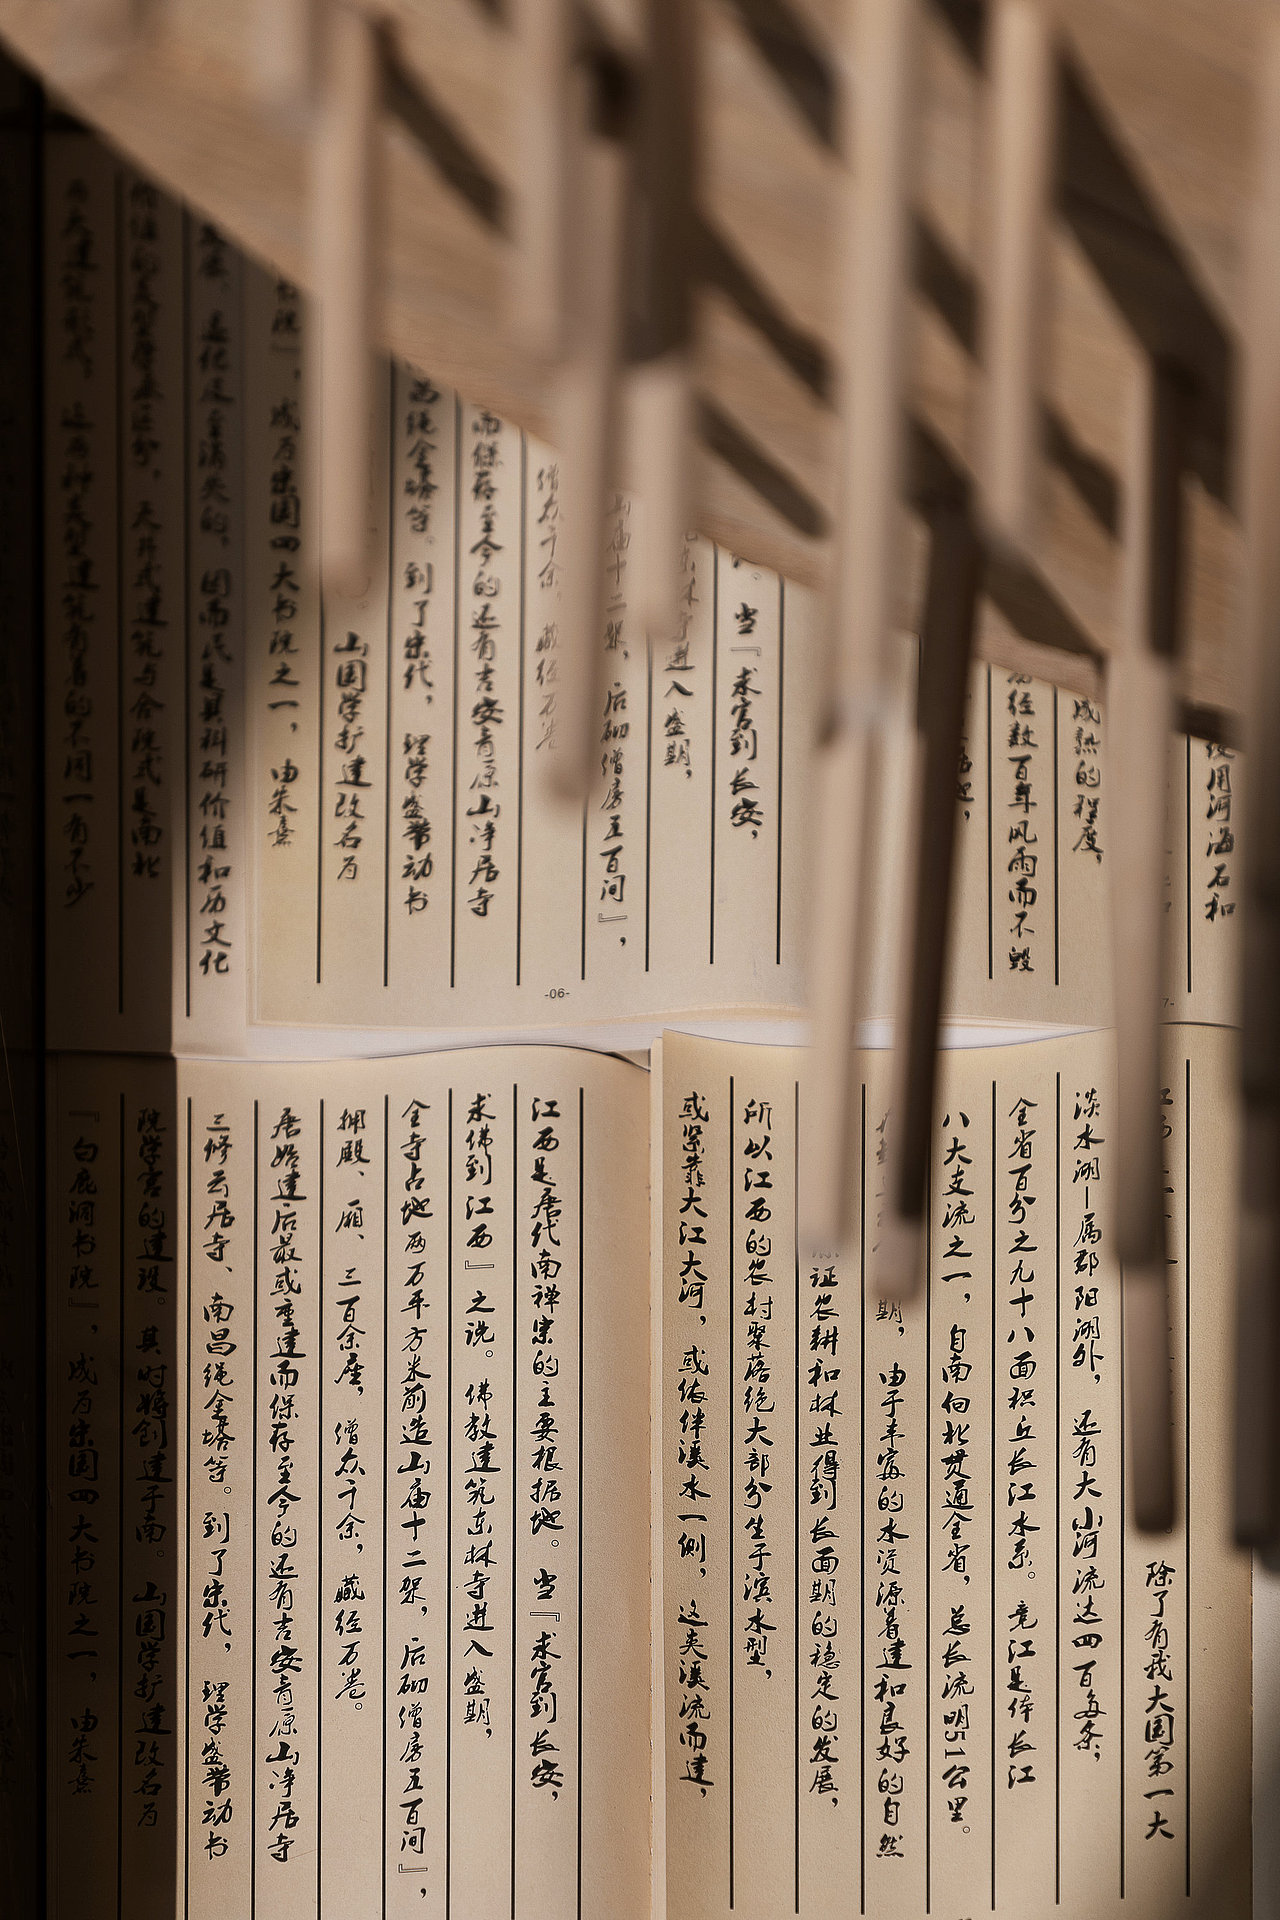 用河海石和
成熟的程度，
经数百年风雨而不毁
当『求官到长安，
林寺进入盛期，
山庙十二架，后砌僧房五百间』，
僧众千余，藏经万卷
而保存至今的还有吉安青原山净居寺
昌绳金塔等。到了宋代，理学盛带动书
山国学扩建改名为
院』，成为宋国四大书院之一，由朱熹
退化及至消失的，因而民是具科研价值和历文化
天井式建筑与合院式是南北
大建筑形式，这两种类型建筑有着的不同一有不少
-06-
除了有我大国第一大
淡水湖—属鄱阳湖外，还有大小河流达四百多条，
全省百分之九十八面积丘长江水系。竞江是伴长江
八大支流之一，自南向北贯通全省，总长流明51公里。
期，由于丰富的水资源着建和良好的自然
证农耕和林业得到长面期的稳定的发展，
所以江西的农村聚落绝大部分生于滨水型，
或紧靠大江大河，或依伴溪水一侧，这夹溪流而建，
江西是唐代南禅宗的主要根据地。当『求官到长安，
求佛到江西』之说。佛教建筑东林寺进入盛期，
全寺占地两万平方米前造山庙十二架，后砌僧房五百间』，
拥殿、厢、三百余座，僧众千余，藏经万卷。
唐始建后最或重建而保存至今的还有吉安青原山净居寺
三修云居寺、南昌绳金塔等。到了宋代，理学盛带动书
院学宫的建设。其时将创建于南。山国学扩建改名为
『白鹿洞书院』，成为宋国四大书院之一，由朱熹